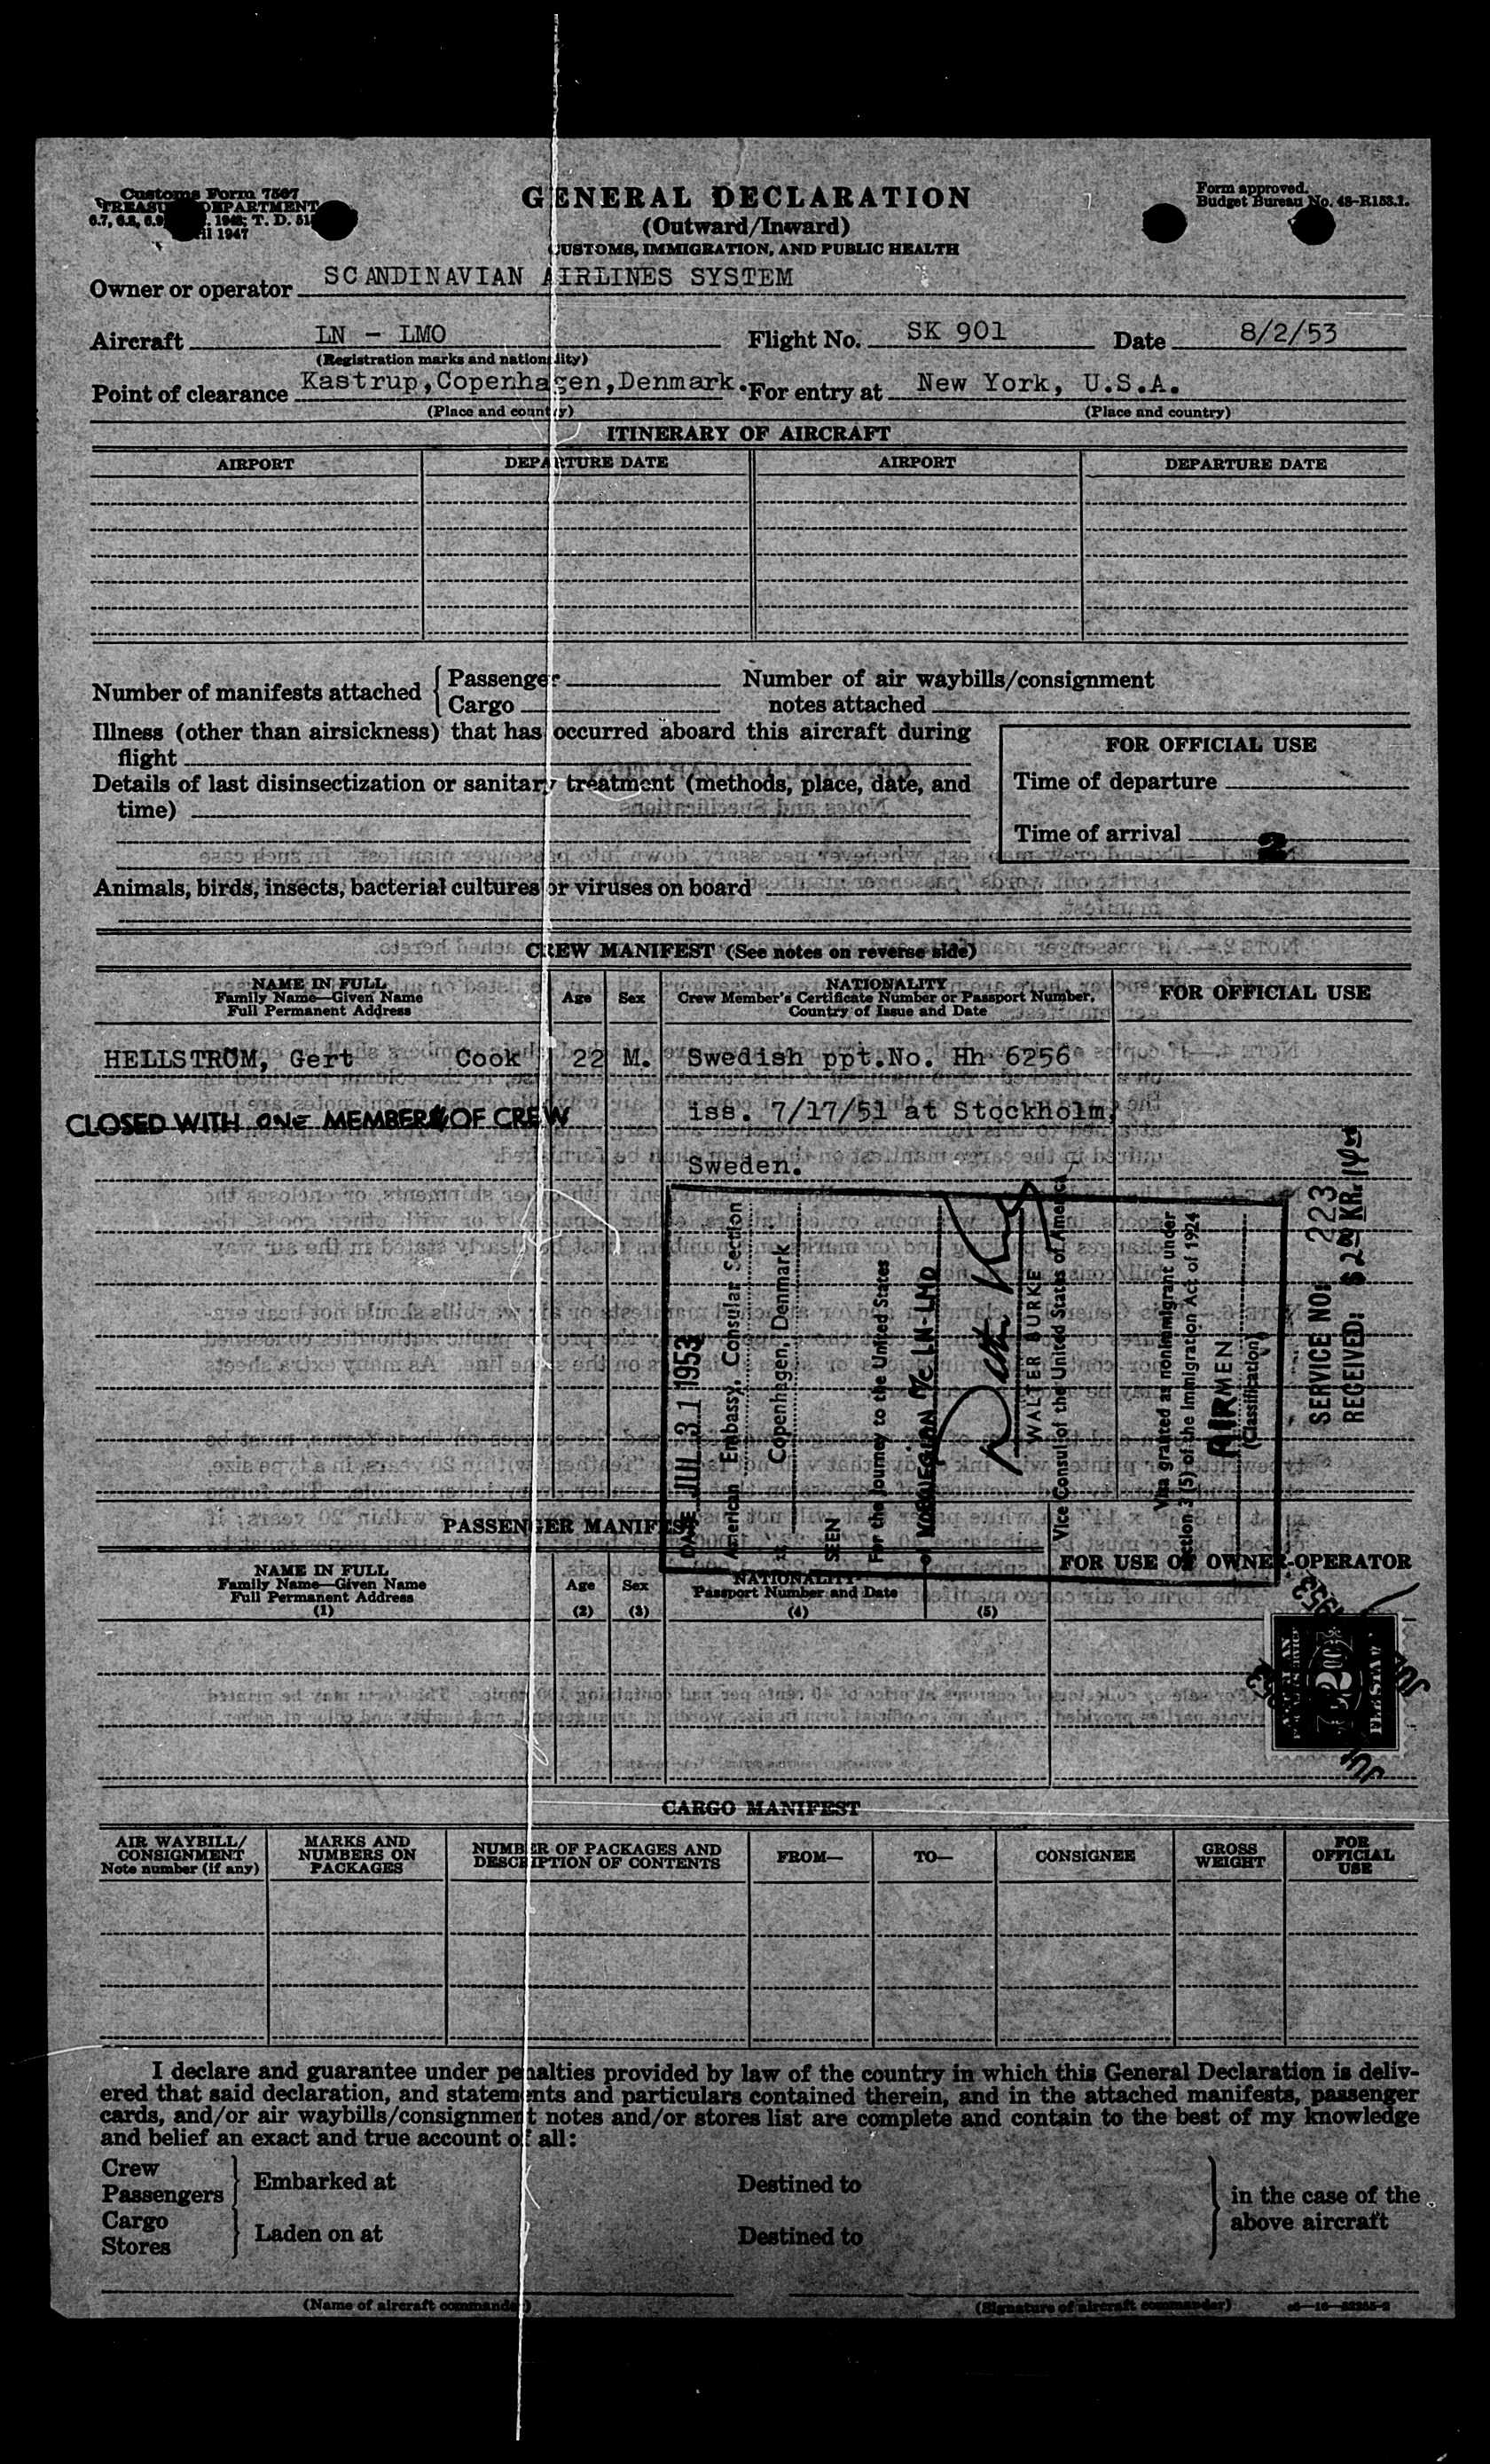 Customs Form 7507
TREASURY DEPARTMENT
GENERAL DECLARATION
(Outward/Inward)
CUSTOMS, IMMIGRATION, AND PUBLIC HEALTH
Form approved.
Budget Bureau No. 48-R153.1.
Owner or operator SCANDINAVIAN AIRLINES SYSTEM
Aircraft LN - LMO Flight No. SK 901 Date 8/2/53
(Registration marks and nationality)
Point of clearance Kastrup, Copenhagen, Denmark. For entry at New York, U.S.A.
(Place and country) (Place and country)
ITINERARY OF AIRCRAFT
AIRPORT DEPARTURE DATE AIRPORT DEPARTURE DATE
Number of manifests attached { Passenger
Cargo
Number of air waybills/consignment
notes attached
Illness (other than airsickness) that has occurred aboard this aircraft during
flight
Details of last disinsectization or sanitary treatment (methods, place, date, and
time)
FOR OFFICIAL USE
Time of departure
Time of arrival
2
Animals, birds, insects, bacterial cultures or viruses on board
CREW MANIFEST (See notes on reverse side)
NAME IN FULL
Family Name—Given Name
Full Permanent Address
Age
Sex
NATIONALITY
Crew Member's Certificate Number or Passport Number,
Country of Issue and Date
FOR OFFICIAL USE
HELLSTRÖM, Gert Cook 22 M. Swedish ppt.No. Hh 6256
iss. 7/17/51 at Stockholm,
Sweden.
CLOSED WITH ONE MEMBER OF CREW
DATE JUL 31 1953
American Embassy, Consular Section
Copenhagen, Denmark
SEEN
For the Journey to the United States
NORWEGIAN A/C LN-LMO
WALTER BURKE
Vice Consul of the United States of America
Visa granted as nonimmigrant under
Section 3 (5) of the Immigration Act of 1924
AIRMEN
(Classification)
SERVICE NO: 223
RECEIVED: $2.00 KR.
PASSENGER MANIFEST
NAME IN FULL
Family Name—Given Name
Full Permanent Address
(1)
Age
(2)
Sex
(3)
NATIONALITY
Passport Number and Date
(4) (5)
FOR USE OF OWNER-OPERATOR
CARGO MANIFEST
AIR WAYBILL/
CONSIGNMENT
Note number (if any)
MARKS AND
NUMBERS ON
PACKAGES
NUMBER OF PACKAGES AND
DESCRIPTION OF CONTENTS
FROM—
TO—
CONSIGNEE
GROSS
WEIGHT
FOR
OFFICIAL
USE
I declare and guarantee under penalties provided by law of the country in which this General Declaration is deliv-
ered that said declaration, and statements and particulars contained therein, and in the attached manifests, passenger
cards, and/or air waybills/consignment notes and/or stores list are complete and contain to the best of my knowledge
and belief an exact and true account of all:
Crew
Passengers } Embarked at Destined to
Cargo
Stores } Laden on at Destined to
} in the case of the
above aircraft
(Name of aircraft commander) (Signature of aircraft commander)